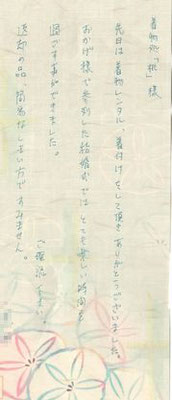 着物処「桃」様
先日は着物レンタル、着付けをして頂きありがとうございました。
おかげ様で参列した結婚式では とても楽しい時間を
過ごす事ができました。
ご確認下さい。
返却の品、簡易なしまい方ですみません。